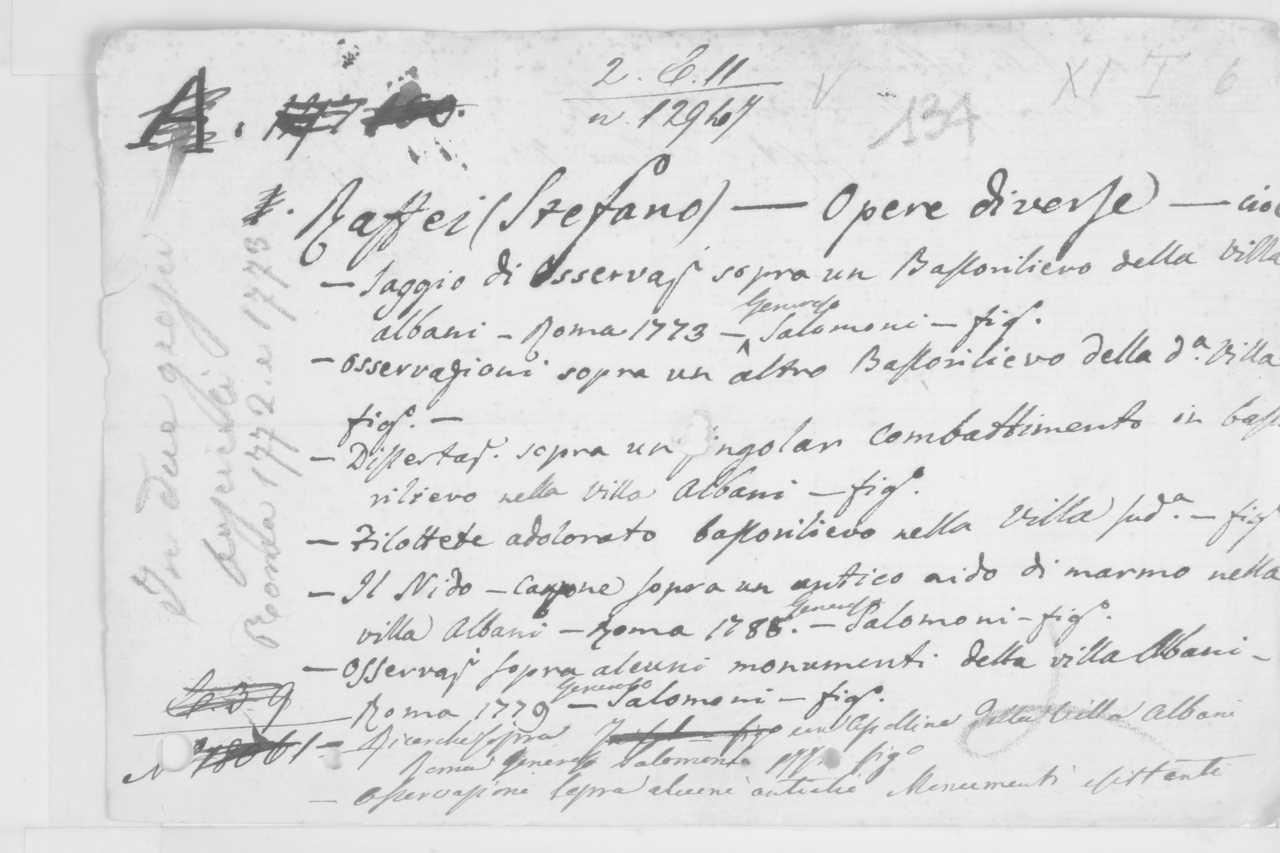 2. C. 11
n. 12947
V
134
XI I 6
A.
Raffei (Stefano) — Opere diverse — cioè
— Saggio di Osservaz. sopra un Bassorilievo della Villa
albani — Roma 1773 — Generoso Salomoni — fig.
— Osservazioni sopra un altro Bassorilievo della da. Villa
fig. —
— Dissertaz. sopra un singolar combattimento in basso
rilievo nella villa Albani — fig.
— Filottete adolorato bassorilievo nella Villa sud.a — fig
— Il Nido — Canzone sopra un antico nido di marmo nella
villa Albani — Roma 1788. — Generoso Salomoni — fig.
— Osservaz. sopra alcuni monumenti della villa Albani —
Roma 1779 — Generoso Salomoni — fig.
— Ricerche sopra un Apolline della Villa Albani
Roma Generoso Salomoni fig
— Osservazioni sopra alcuni antichi Monumenti esistenti
In due
Roma 1772. e 1773
639